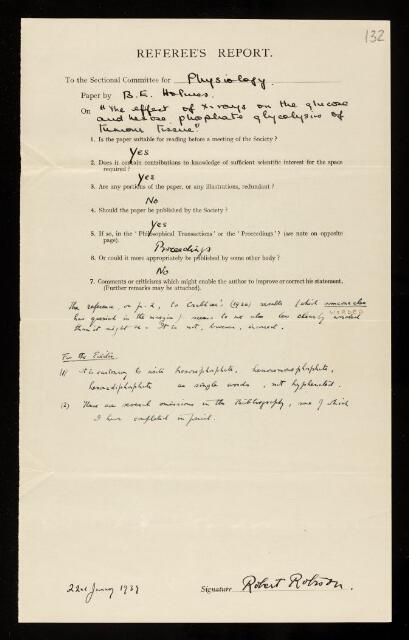 132
REFEREE'S REPORT.
To the Sectional Committee for Physiology
Paper by B. E. Holmes.
On "The effect of x-rays on the glucose
and hexose phosphate glycolysis of
tumour tissue."
1. Is the paper suitable for reading before a meeting of the Society ?
Yes
2. Does it contain contributions to knowledge of sufficient scientific interest for the space
required ?
Yes
3. Are any portions of the paper, or any illustrations, redundant ?
No
4. Should the paper be published by the Society ?
Yes
5. If so, in the 'Philosophical Transactions' or the 'Proceedings' ? (see note on opposite
page).
Proceedings
6. Or could it more appropriately be published by some other body ?
No
7. Comments or criticisms which might enable the author to improve or correct his statement.
(Further remarks may be attached).
The reference, on p. 2, to Crabtree's results (which someone else
has queried in the margin) seems to me also less clearly worded
WORDED
than it might be. It is not, however, incorrect.
For the Editor.
(1) It is customary to write hexosephosphate, hexosemonophosphate,
hexosediphosphate as single words, not hyphenated.
(2) There are several omissions in the Bibliography, some of which
I have completed in pencil.
22nd January 1939
Signature Robert Robison.